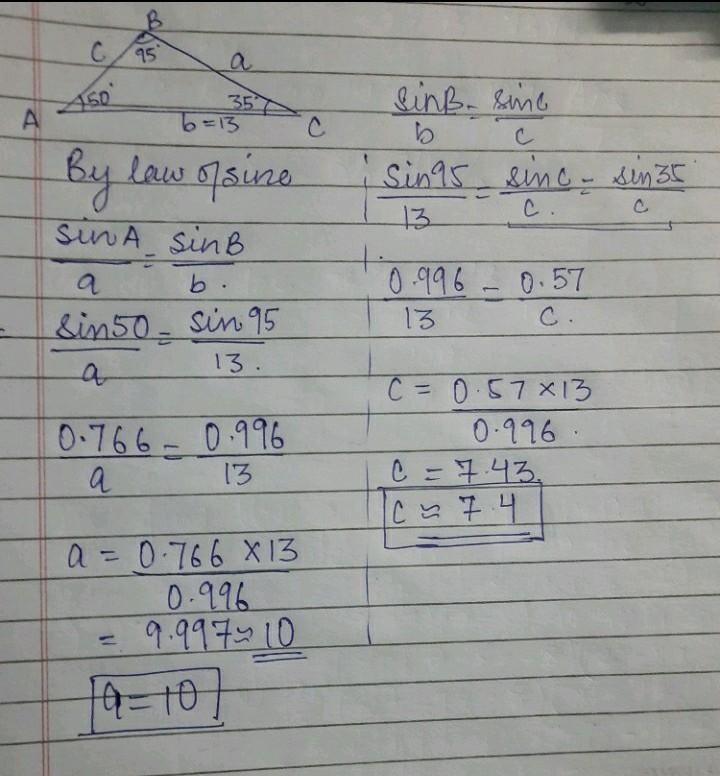 B
c 95° a
A 50° 35° C
b=13
By law of sine
sinA/a = sinB/b.
sin50/a = sin95/13.
0.766/a = 0.996/13
a = 0.766 × 13/0.996
= 9.997 ≈ 10
a=10
sinB/b = sinC/c
sin95/13 = sinC/c. = sin35/c
0.996/13 = 0.57/c.
c = 0.57 × 13/0.996.
c = 7.43.
c ≈ 7.4